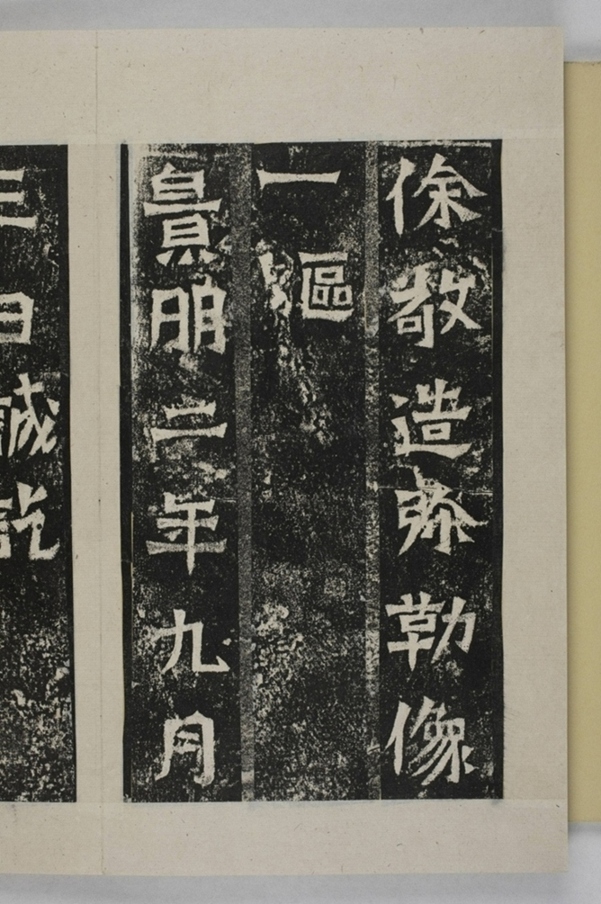 俆敬造弥勒像
一軀
景明二年九月
三日誠訖